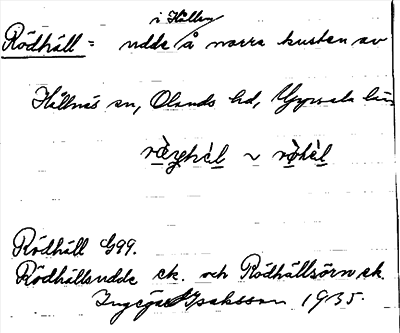 i Hållen
Rödhäll = udde å norra kusten av
Hållnäs sn, Olands hd, Uppsala län
~
Rödhäll G99.
Rödhällsudde ek. och Rödhällsörn ek.
Ingegärd Isaksson 1935.